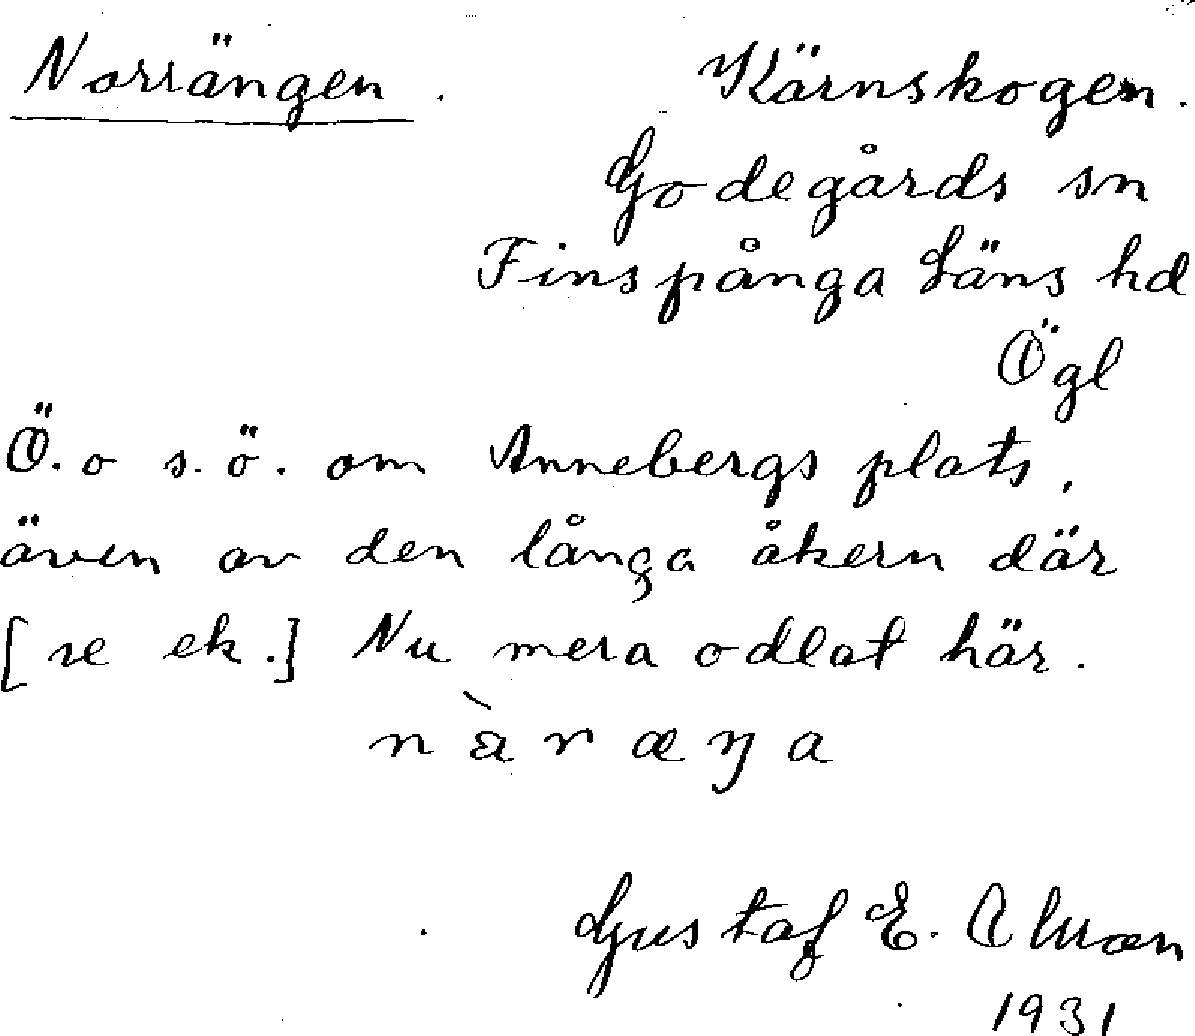 Norrängen. Kärnskogen.
Godegårds sn
Finspånga Läns hd
Ögl
Ö. o s. ö. om Annebergs plats,
även av den långa åkern där
[se ek.] Nu mera odlat här.
nàræŋa
Gustaf E. Alman
1931